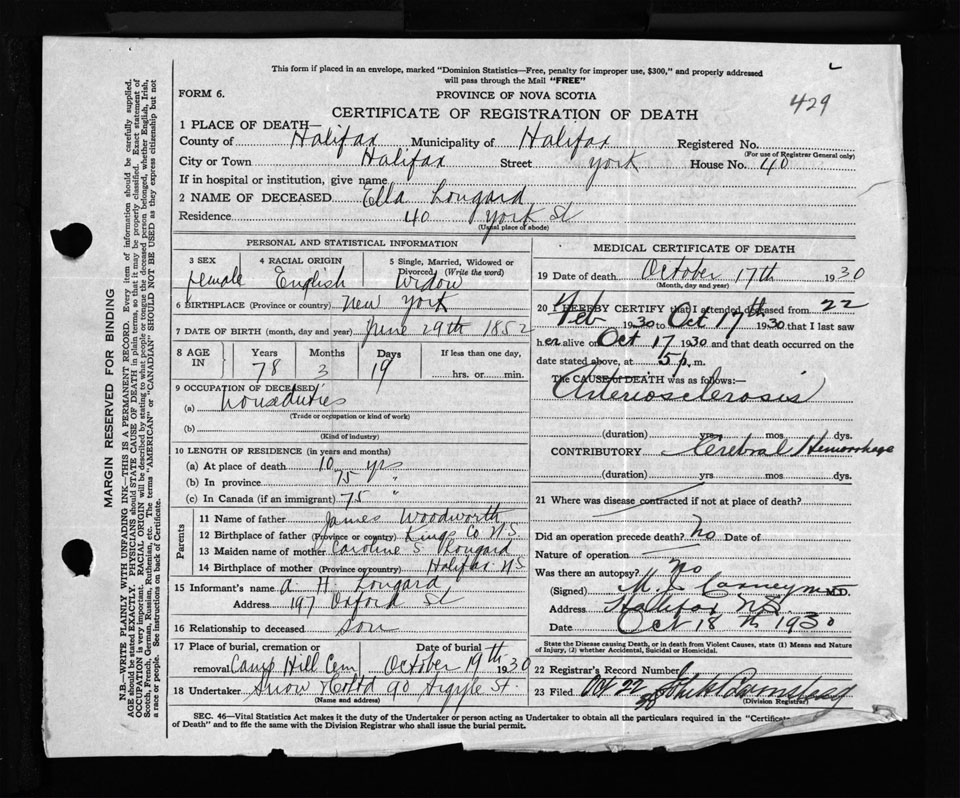 This form if placed in an envelope, marked "Dominion Statistics—Free, penalty for improper use, $300," and properly addressed
will pass through the Mail "FREE"
FORM 6.
PROVINCE OF NOVA SCOTIA
429
CERTIFICATE OF REGISTRATION OF DEATH
1 PLACE OF DEATH—
County of Halifax Municipality of Halifax Registered No.
(For use of Registrar General only)
City or Town Halifax Street York House No. 40
If in hospital or institution, give name
2 NAME OF DECEASED Ella Longard
Residence 40 York St
(Usual place of abode)
PERSONAL AND STATISTICAL INFORMATION
3 SEX 4 RACIAL ORIGIN 5 Single, Married, Widowed or
Divorced (Write the word)
female English Widow
6 BIRTHPLACE (Province or country) New York
7 DATE OF BIRTH (month, day and year) June 29th 1852
8 AGE IN Years Months Days If less than one day,
78 3 19 hrs. or min.
9 OCCUPATION OF DECEASED
(a) houseduties
(Trade or occupation or kind of work)
(b)
(Kind of industry)
10 LENGTH OF RESIDENCE (in years and months)
(a) At place of death 10 yrs
(b) In province 75 "
(c) In Canada (if an immigrant) 75 "
Parents
11 Name of father James Woodworth
12 Birthplace of father (Province or country) Kings Co NS
13 Maiden name of mother Caroline S Longard
14 Birthplace of mother (Province or country) Halifax NS
15 Informant's name A. H. Longard
Address 197 Oxford St
16 Relationship to deceased son
17 Place of burial, cremation or Date of burial
removal Camp Hill Cem October 19th 1930
18 Undertaker Snow & Co Ltd 90 Argyle St.
(Name and address)
MEDICAL CERTIFICATE OF DEATH
19 Date of death October 17th 1930
(Month, day and year)
20 I HEREBY CERTIFY that I attended deceased from 22
Feb 1930 to Oct 17th 1930 that I last saw
her alive on Oct 17 1930 and that death occurred on the
date stated above, at 5 p.m.
The CAUSE OF DEATH was as follows:—
Arteriosclerosis
(duration) yrs mos dys.
CONTRIBUTORY Cerebral Hemorrhage
(duration) yrs mos dys.
21 Where was disease contracted if not at place of death?
Did an operation precede death? No Date of
Nature of operation
Was there an autopsy? no
(Signed) M.D.
Address Halifax NS
Date Oct 18th 1930
State the Disease causing Death, or in death from Violent Causes, state (1) Means and Nature
of Injury, (2) whether Accidental, Suicidal or Homicidal.
22 Registrar's Record Number
23 Filed Oct 22 30
(Division Registrar)
SEC. 46—Vital Statistics Act makes it the duty of the Undertaker or person acting as Undertaker to obtain all the particulars required in the "Certificate
of Death" and to file the same with the Division Registrar who shall issue the burial permit.
MARGIN RESERVED FOR BINDING
N.B.—WRITE PLAINLY WITH UNFADING INK—THIS IS A PERMANENT RECORD. Every item of information should be carefully supplied.
AGE should be stated EXACTLY. PHYSICIANS should STATE CAUSE OF DEATH in plain terms, so that it may be properly classified. Exact statement of
OCCUPATION is very important. RACIAL ORIGIN will be described by stating to what people or tongue the deceased person belonged, whether English, Irish,
Scotch, French, German, Russian, Ruthenian, etc. The terms "AMERICAN" or "CANADIAN" SHOULD NOT BE USED as they express citizenship but not
a race or people. See instructions on back of Certificate.